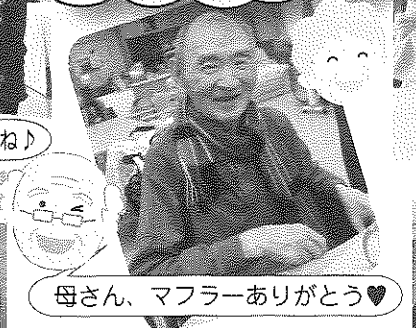 ね♪
母さん、マフラーありがとう♥